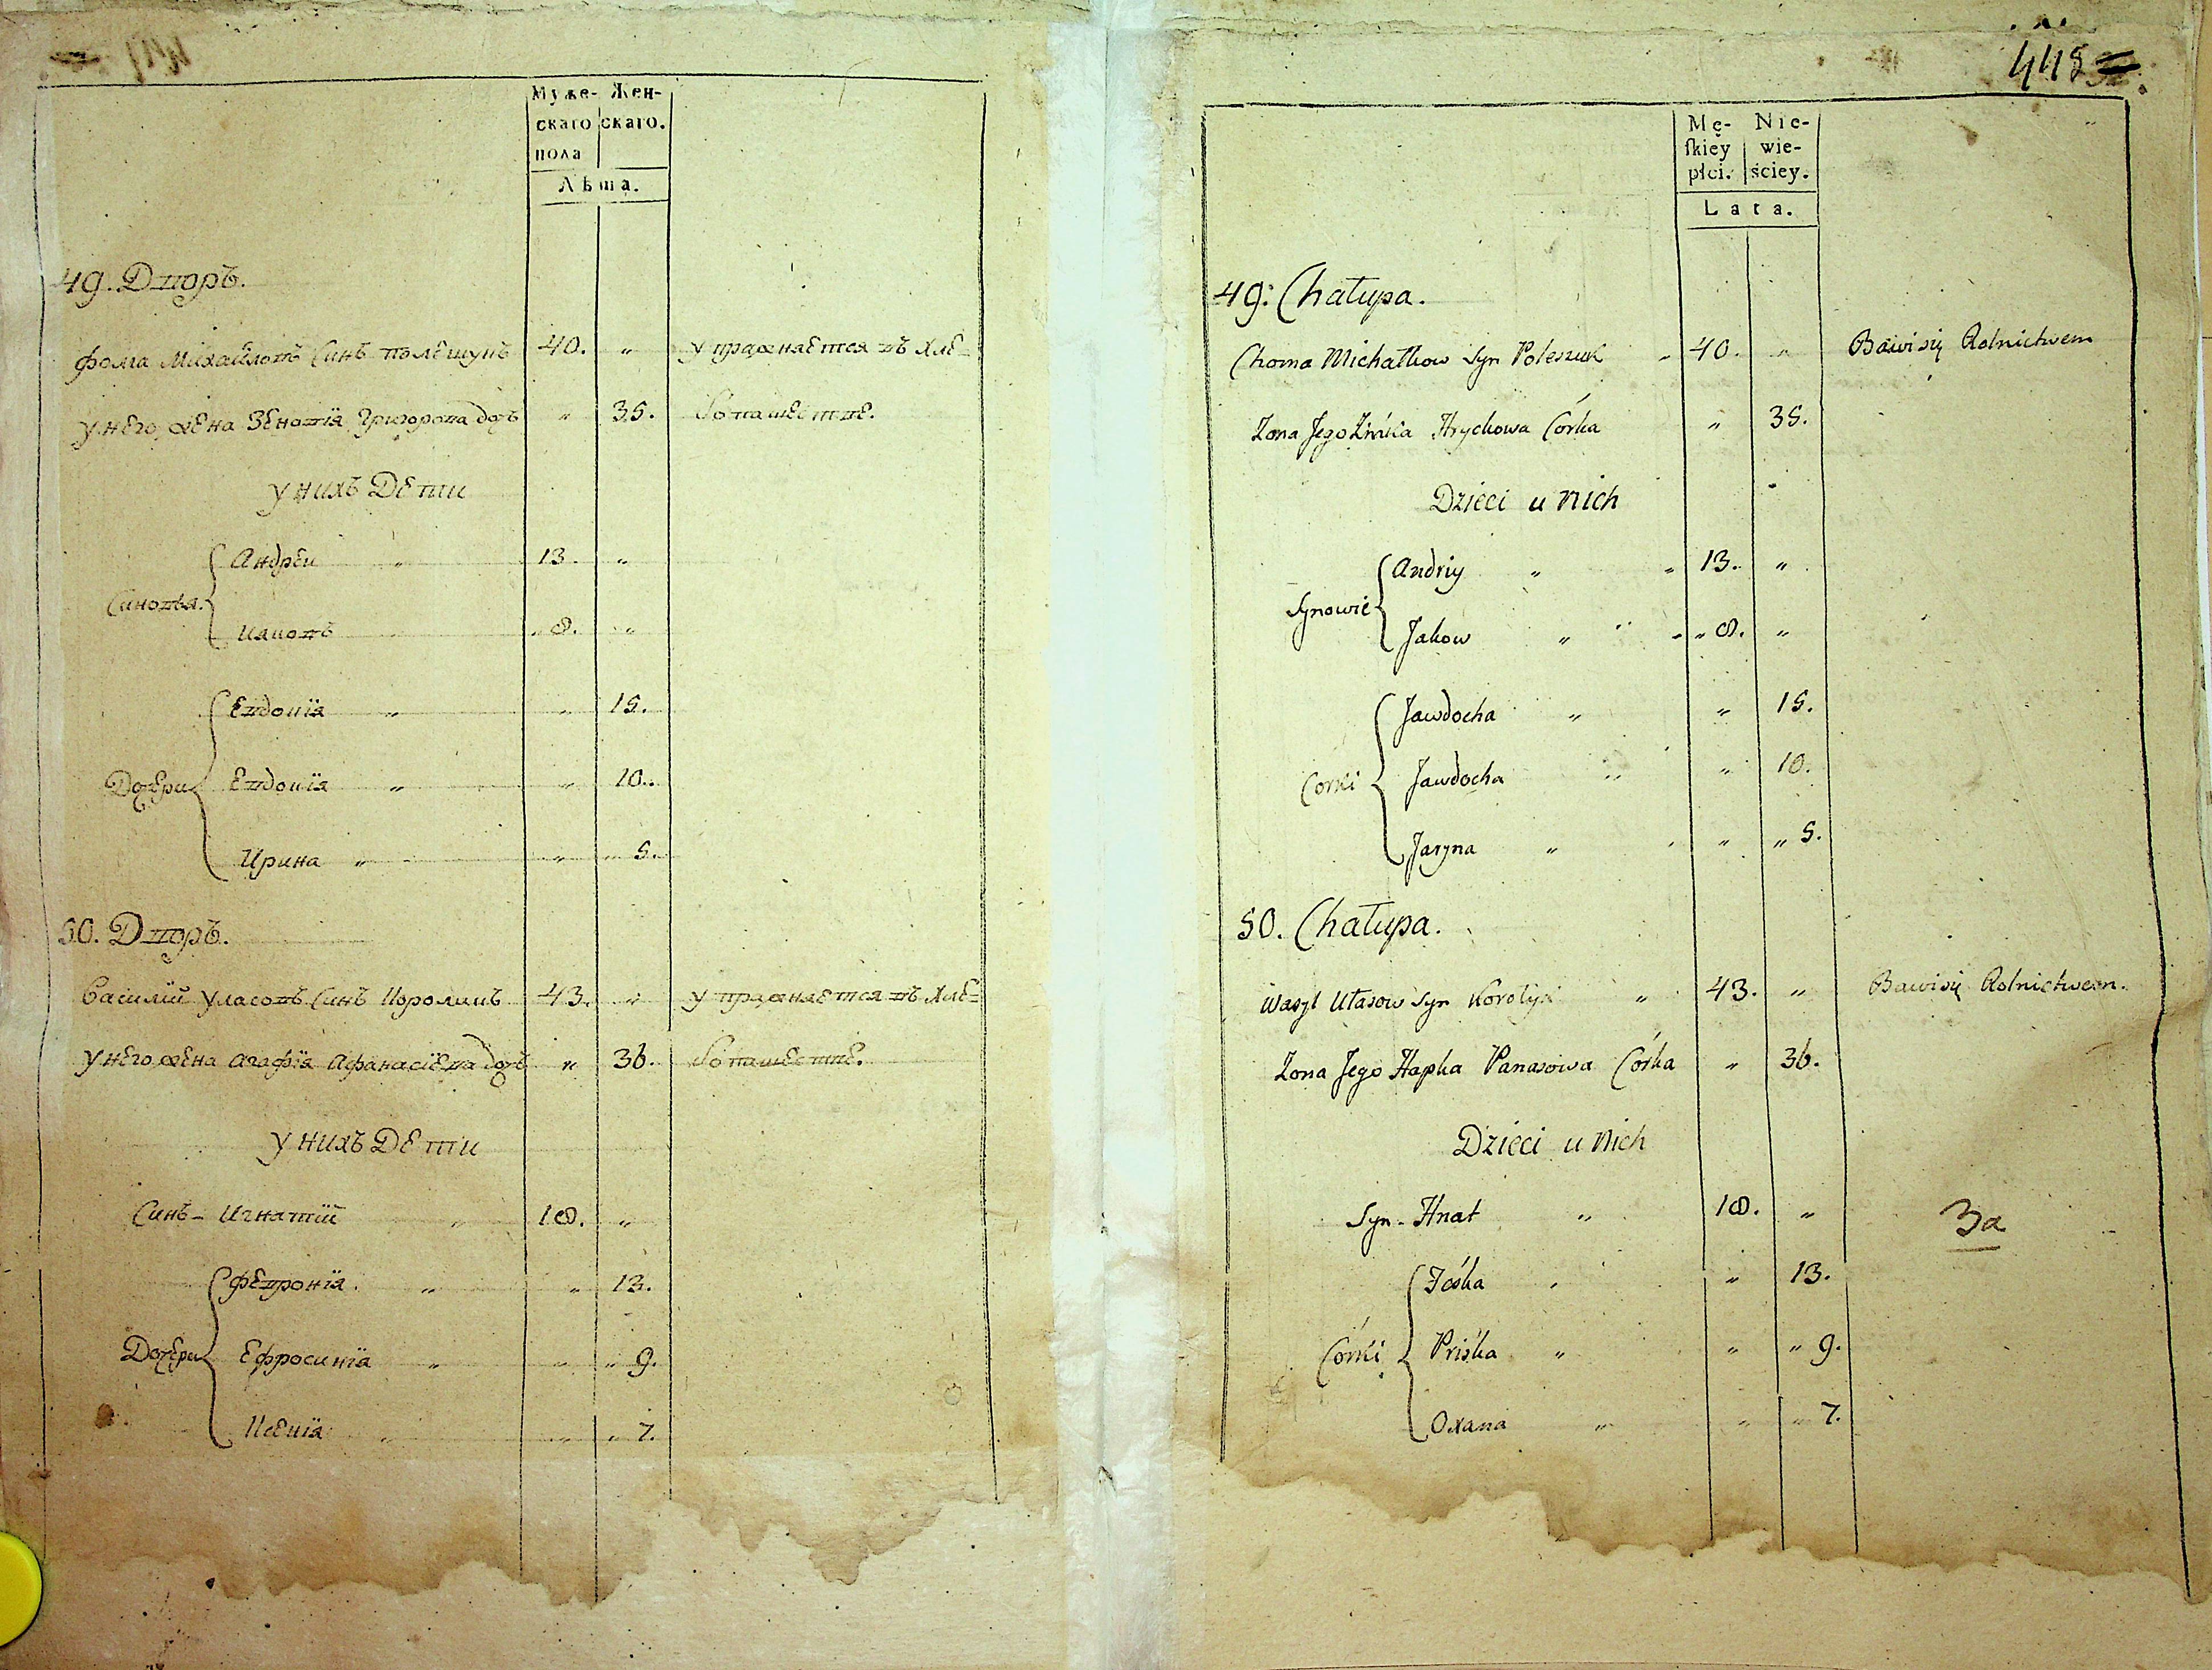 Муже- Жен-
скаго скаго.
пола
Лѣта.
49. Дворъ.
Фома Михайловъ Синъ полещукъ 40. „ упражняется въ хлѣ-
у него жена Зеновія Григорова дочь „ 35. бопашестве.
у нихъ Дети
Синовья.
Андрей „ 13. „
Иаковъ „ 8. „
Дочери
Евдокія „ „ 15.
Евдокія „ „ 10.
Ирина „ „ „ 5.
50. Дворъ.
Василій Уласовъ Синъ 43. „ упражняется въ хлѣ-
у него жена Агафія Афанасіева дочь „ 36. бопашестве.
у нихъ Дети
Синъ - Игнатій „ 18. „
Дочери
Февронія „ „ 13.
Ефросинія „ „ „ 9.
Ксенія „ „ „ 7.
448
Mę- Nie-
skiey wie-
płci. ściey.
Lata.
49. Chałupa.
Choma Michałkow Syn Poleszuk „ 40. „ Bawi się Rolnictwem
Zona Jego Hrychowa Córka „ 35.
Dzieci u nich
Synowie
Andriy „ „ 13. „
Jakow „ „ „ 8. „
Corki
Jawdocha „ „ 15.
Jawdocha „ „ 10.
Jaryna „ „ „ 5.
50. Chałupa.
Wasyl Ułasow Syn „ 43. „ Bawi się Rolnictwem.
Zona Jego Hapka Panasowa Córka „ 36.
Dzieci u nich
Syn - Hnat „ 18. „
За
Córki
„ „ 13.
Priśka „ „ „ 9.
Oxana „ „ „ 7.